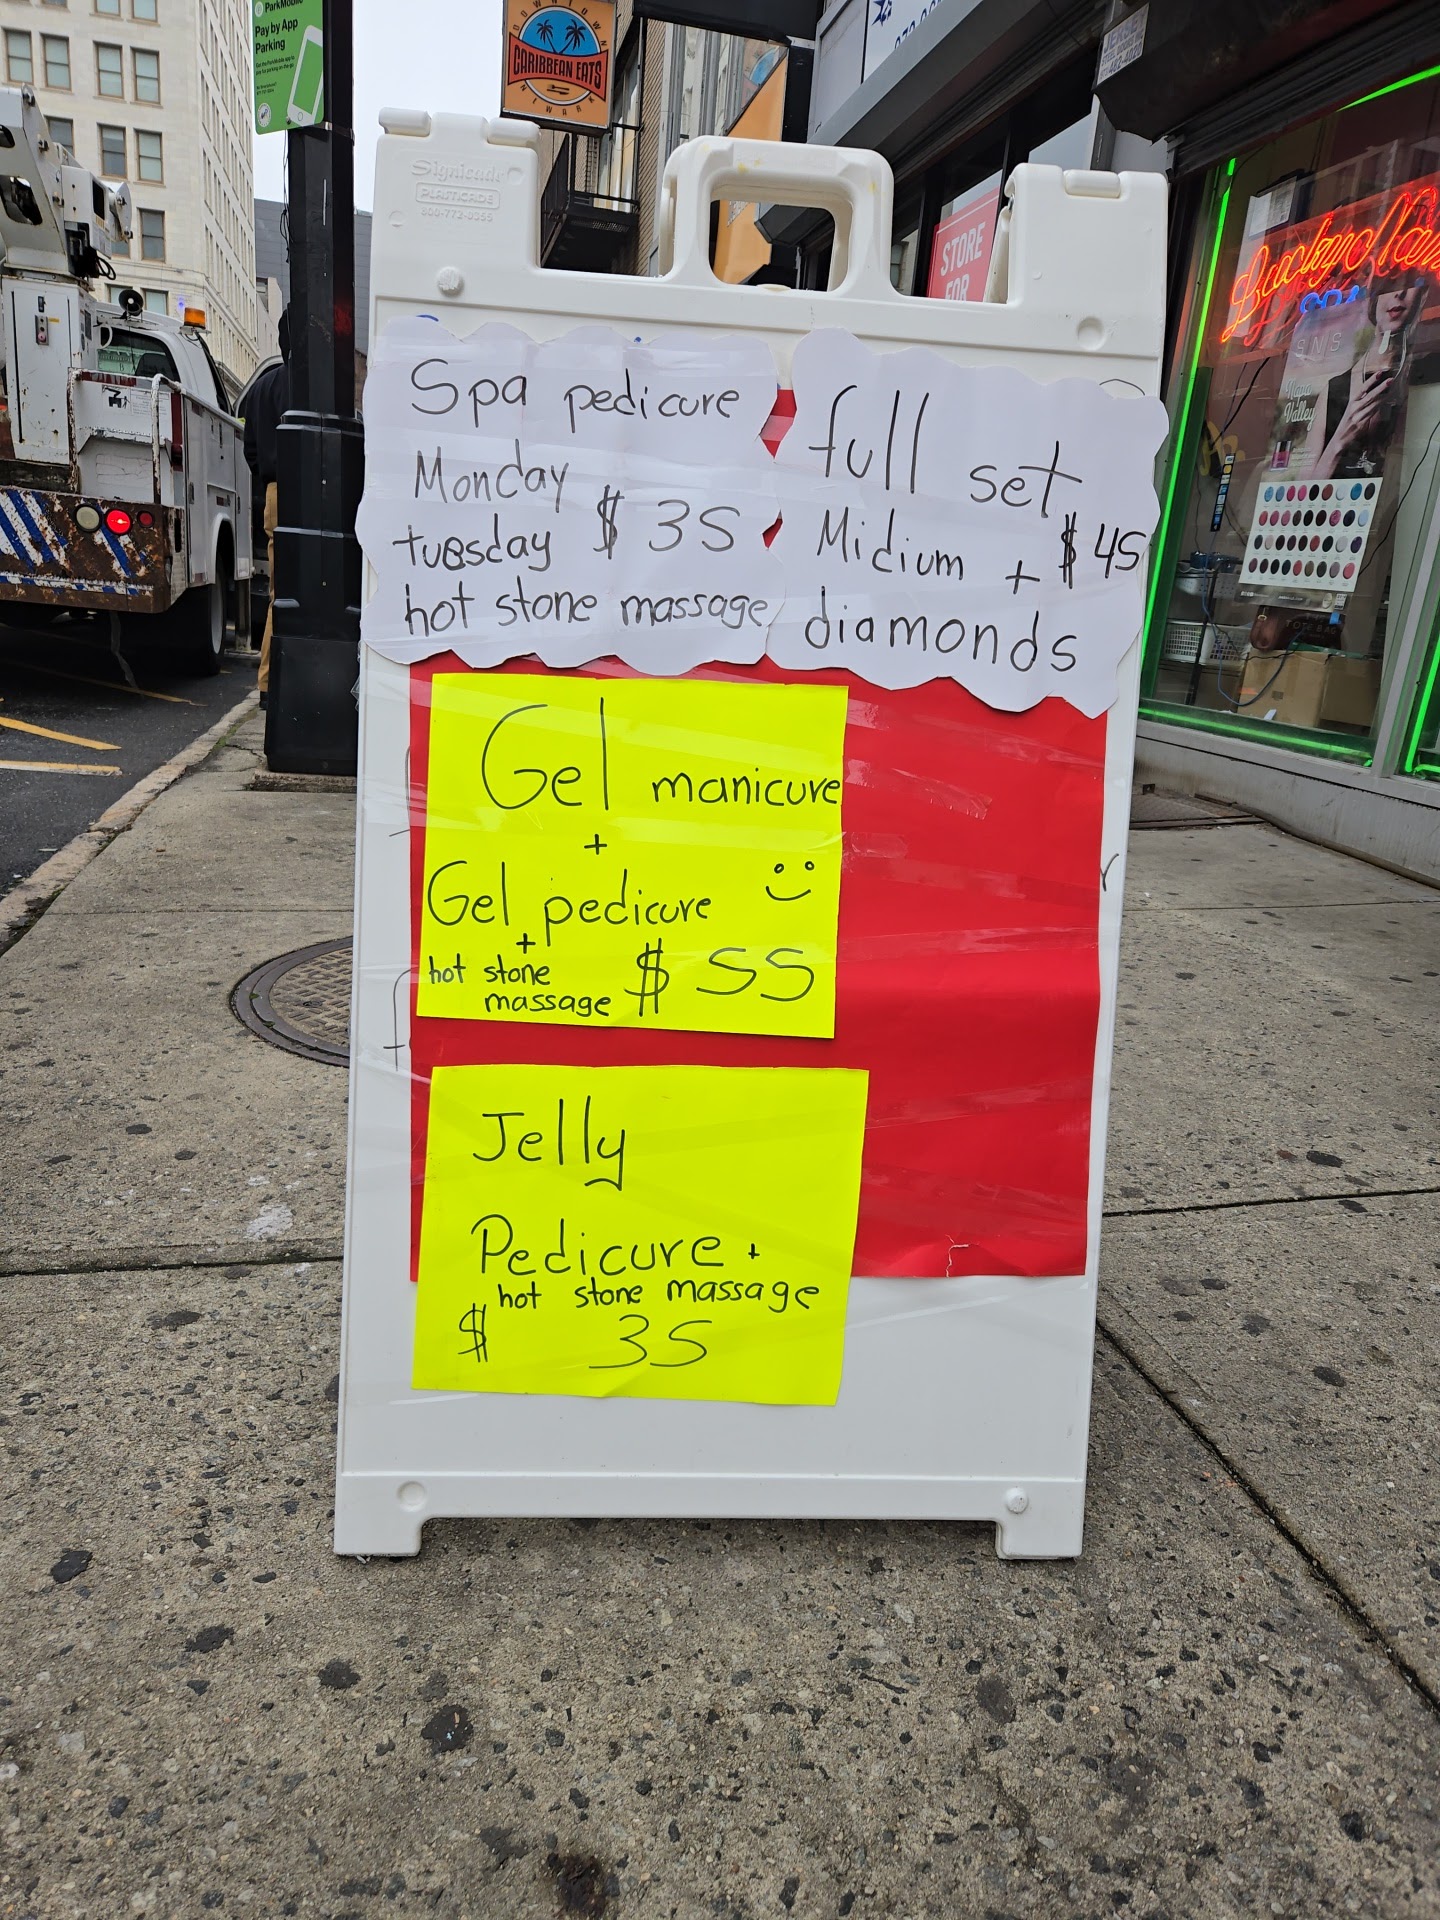 ParkMobile
Pay by App
Parking
DOWNTOWN
CARIBBEAN EATS
NEWARK
Signicade
PLASTICADE
800-772-0355
STORE
FOR
Lucky Nail
SPA
SNS
Napa
Valley
Spa pedicure
Monday
tuesday $ 35
hot stone massage
full set
Midium + $45
diamonds
Gel manicure
+
Gel pedicure
+
hot stone
massage $ 55
Jelly
Pedicure +
hot stone massage
$ 35